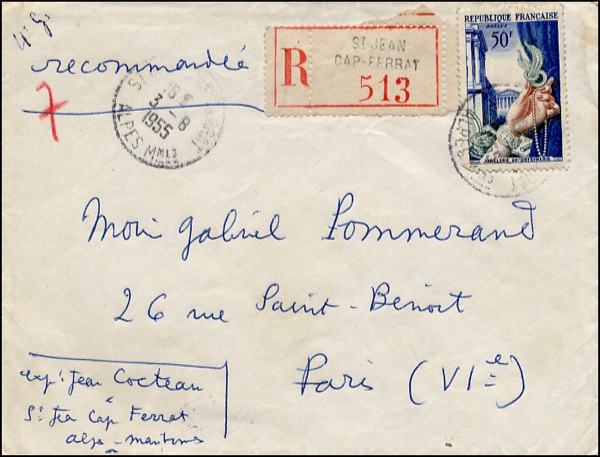 recommandée
R
ST JEAN
CAP-FERRAT
513
REPUBLIQUE FRANÇAISE
POSTES
50F
3-8
1955
ALPES MMES
7
Gabriel Pommerand
26 rue Saint-Benoit
Paris (VIe)
exp: Jean Cocteau
St Jea Cap Ferrat
alpes-maritimes